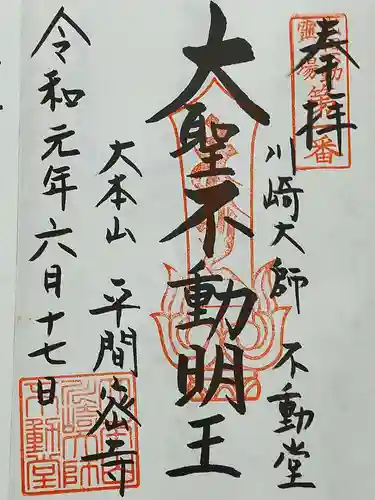 奉拝
川崎大師 不動堂
大聖不動明王
大本山 平間寺
令和元年六月十七日
川崎大師不動堂